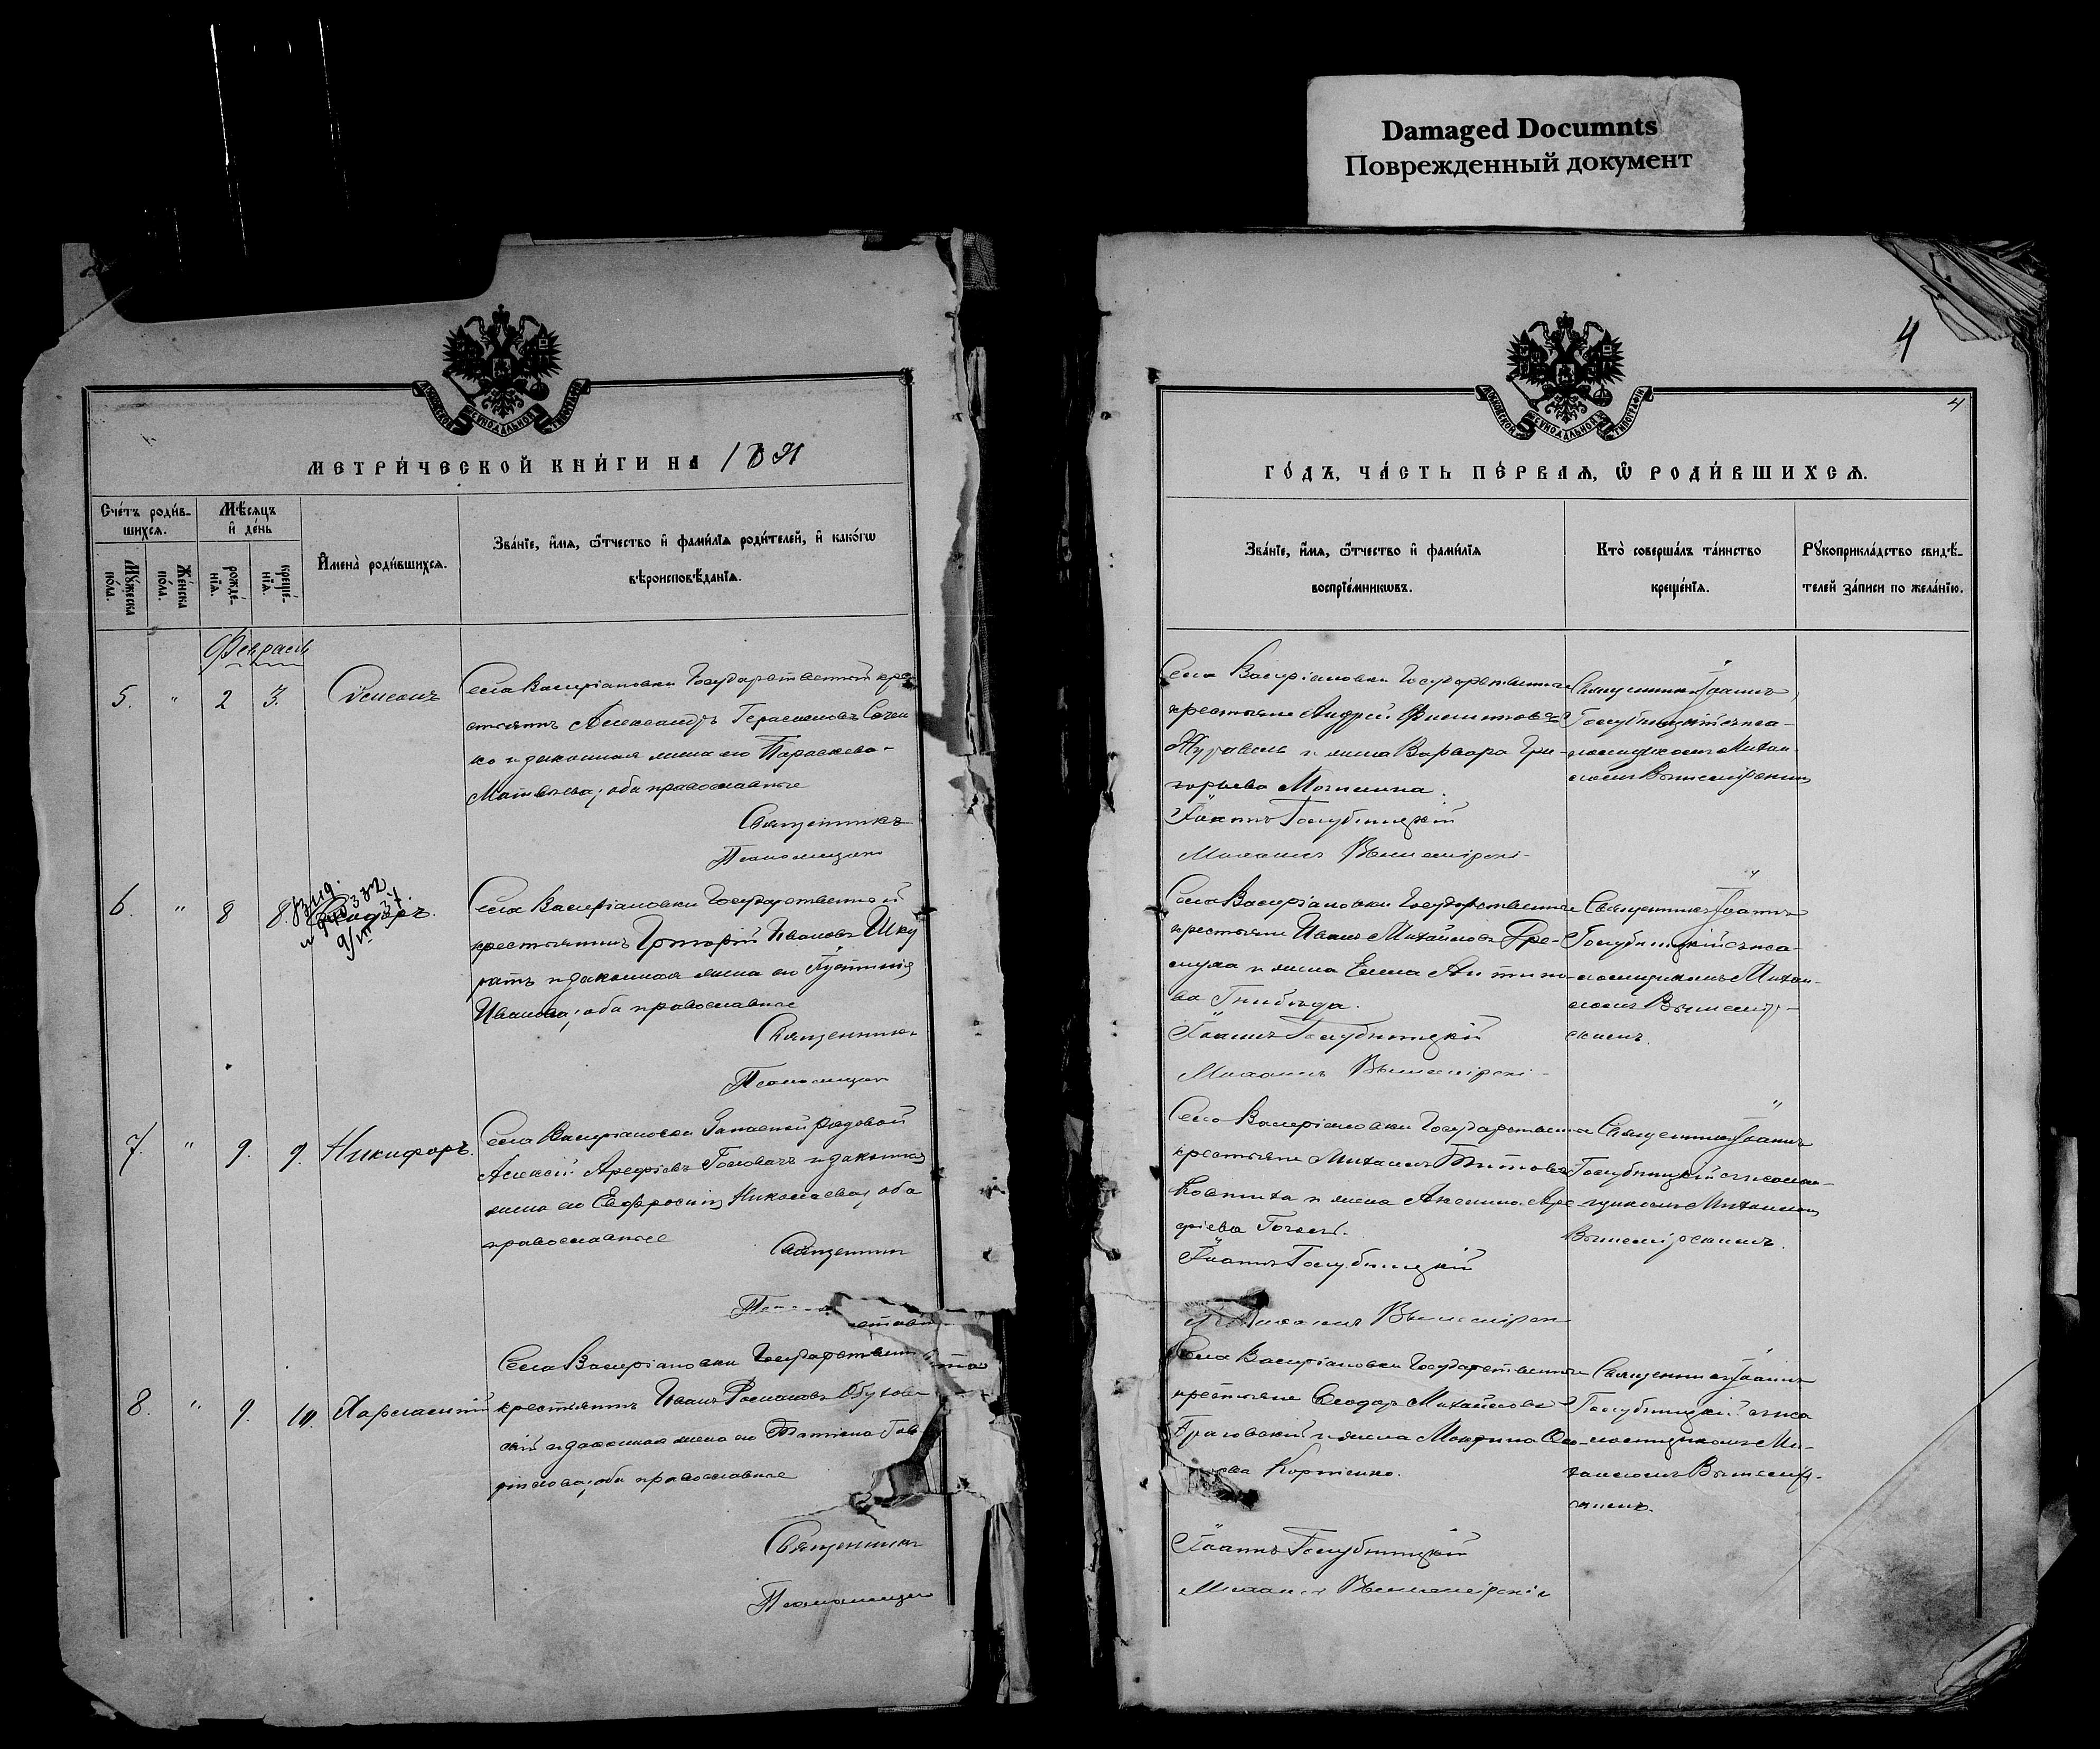 Damaged Documnts
Поврежденный документ
МЕТРИ́ЧЕСКОЙ КНИ́ГИ НА 1891
Сче́тъ роди́в-
шихсѧ.
Мѣ́сѧцъ
и҆ де́нь
И҆мена̀ роди́вшихсѧ.
Зва́нїе, и҆́мѧ, ѻ҆́тчество и҆ фами́лїѧ роди́телей, и҆ како́гѡ
вѣроисповѣ́данїѧ.
Мꙋ́жеска по́ла.
Же́нска по́ла.
рожде́-нїѧ.
креще́-нїѧ.
Февраль
5. " 2 3. Симеонъ
Села Валеріановки Государственный кре-
стьянинъ Александръ Герасимовъ
ко и законная жена его Параскева
Матвѣева; оба православные
Священникъ
Псаломщикъ
6. " 8 8. Ѳеодоръ.
Села Валеріановки Государственный
крестьянинъ Григорій Ивановъ Шку
ратъ и законная жена его Іустинія
Иванова; оба православные
Священникъ
Псаломщикъ
7. " 9. 9. Никифоръ.
Села Валеріановки Запасной рядовой
Алексій Арефіевъ Головачъ и законная
жена его Евфросинія Николаева, оба
православные
Священникъ
8. " 9. 10. Харлампій
Села Валеріановки Государствен
крестьянинъ Иванъ Романовъ Обухов
скій и законная жена его Татіана Гав
ріилова; оба православные
Священникъ
Псаломщикъ
4
4
ГО́ДЪ, ЧА́СТЬ ПЕ́РВАѦ, Ѡ҆ РОДИ́ВШИХСѦ.
Зва́нїе, и҆́мѧ, ѻ҆́тчество и҆ фами́лїѧ
воспрїе́мникѡвъ.
Кто̀ соверша́лъ та́инство
креще́нїѧ.
Рꙋкоприкла́дство свидѣ́-
телей за́писи по жела́нїю.
Села Валеріановки Государственные
крестьяне Андрей Филипповъ
Журавель и жена Варвара Гри-
горьева Могилина.
Іоаннъ Голубницкій
Михаилъ Вышемірскій
Священникъ Іоаннъ
Голубницкій съ пса-
ломщикомъ Михаи-
ломъ Вышемірскимъ
Села Валеріановки Государственные
крестьяне Иванъ Михайловъ Гре-
муха и жена Елена Антипо-
ва
Іоаннъ Голубницкій
Михаилъ Вышемірскі
Священникъ Іоаннъ
Голубницкій съ пса-
ломщикомъ Михаи-
ломъ Вышемір-
скимъ.
Села Валеріановки Государственные
крестьяне Михаилъ Титовъ
Ковтуха и жена Аксинія Аре-
фіева
Іоаннъ Голубницкій
Михаилъ Вышемірскі
Священникъ Іоаннъ
Голубницкій съ псалом-
щикомъ Михаиломъ
Вышемірскимъ.
Села Валеріановки Государственные
крестьяне Ѳеодоръ Михайловъ
и жена Макрина
Корніенко.
Іоаннъ Голубницкій
Михаилъ Вышемірскій
Священникъ Іоаннъ
Голубницкій съ пса-
ломщикомъ Ми-
хаиломъ Вышемір-
скимъ.